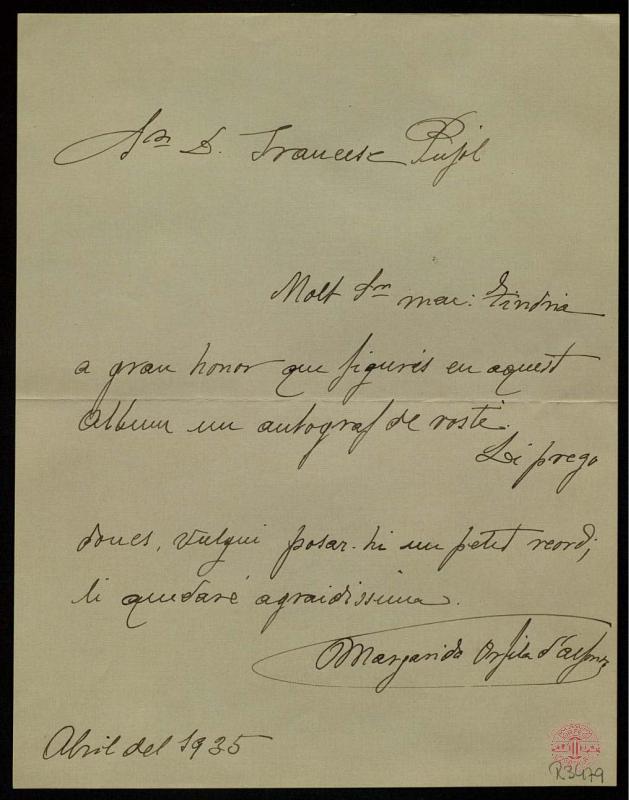 Sr. D. Francesc Pujol
Molt Sr. meu: Tindria
a gran honor que figurés en aquest
album un autograf de vosté.
Li prego
doncs, vulgui posar-hi un petit record;
li quedaré agraidissima.
Margarida Orfila d'
Abril del 1935
R3479